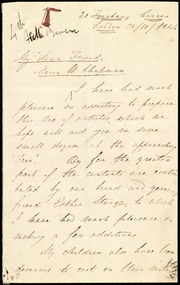 20 Finsbury Circus
London 20/10/1844
My Dear Friend,
Maria W Chapman
I have had much
pleasure in assisting to prepare
this Box of articles, which we
hope will aid you in some
small degree at the approaching
"Fair". By far the greater
part of the contents are contri-
buted by our kind and
friend Esther Sturge, to which
I have had much pleasure in
making a few additions.
My children also have been
desirous to cast in their mite